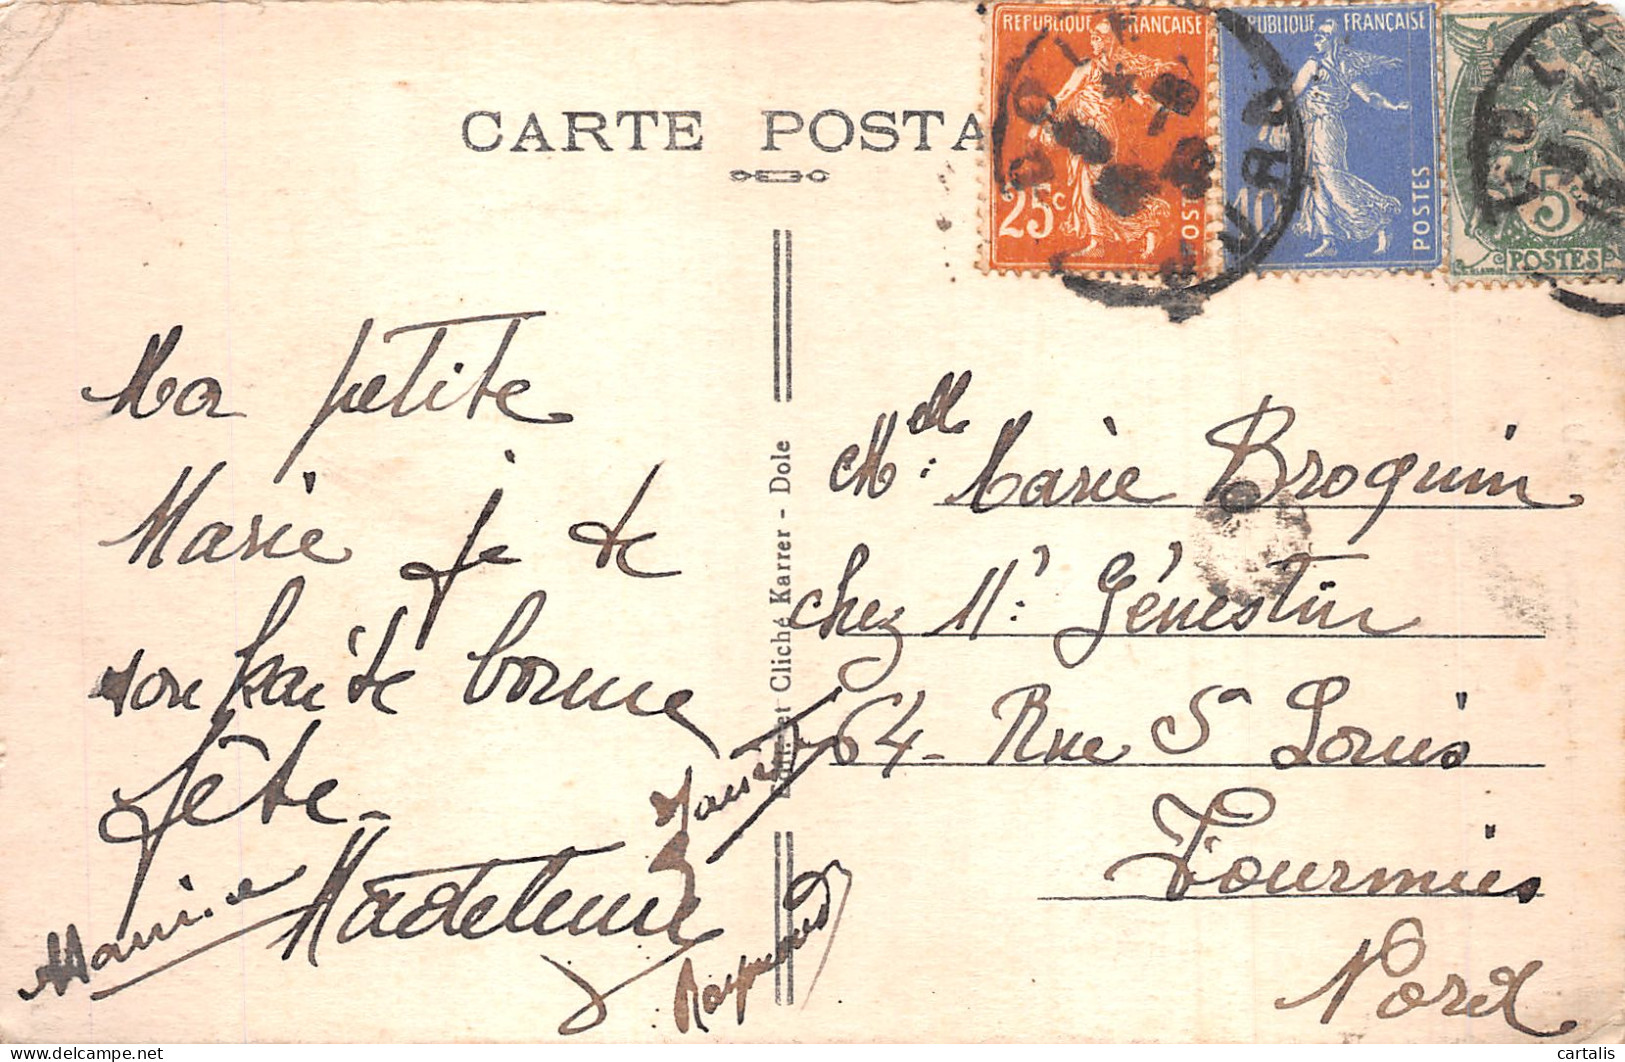 CARTE POSTA
RÉPUBLIQUE FRANÇAISE
25c
POSTES
RÉPUBLIQUE FRANÇAISE
40
POSTES
5c
POSTES
DOLE
JURA
DOLE
Ma petite
Marie je te
souhaite bonne
fête.
Madeleine
Mamie
Raymond
et Cliché Karrer - Dole
Mdlle: Marie Broquin
chez Mr: Génestin
64 - Rue St Louis
Fourmies
Nord
cartalis